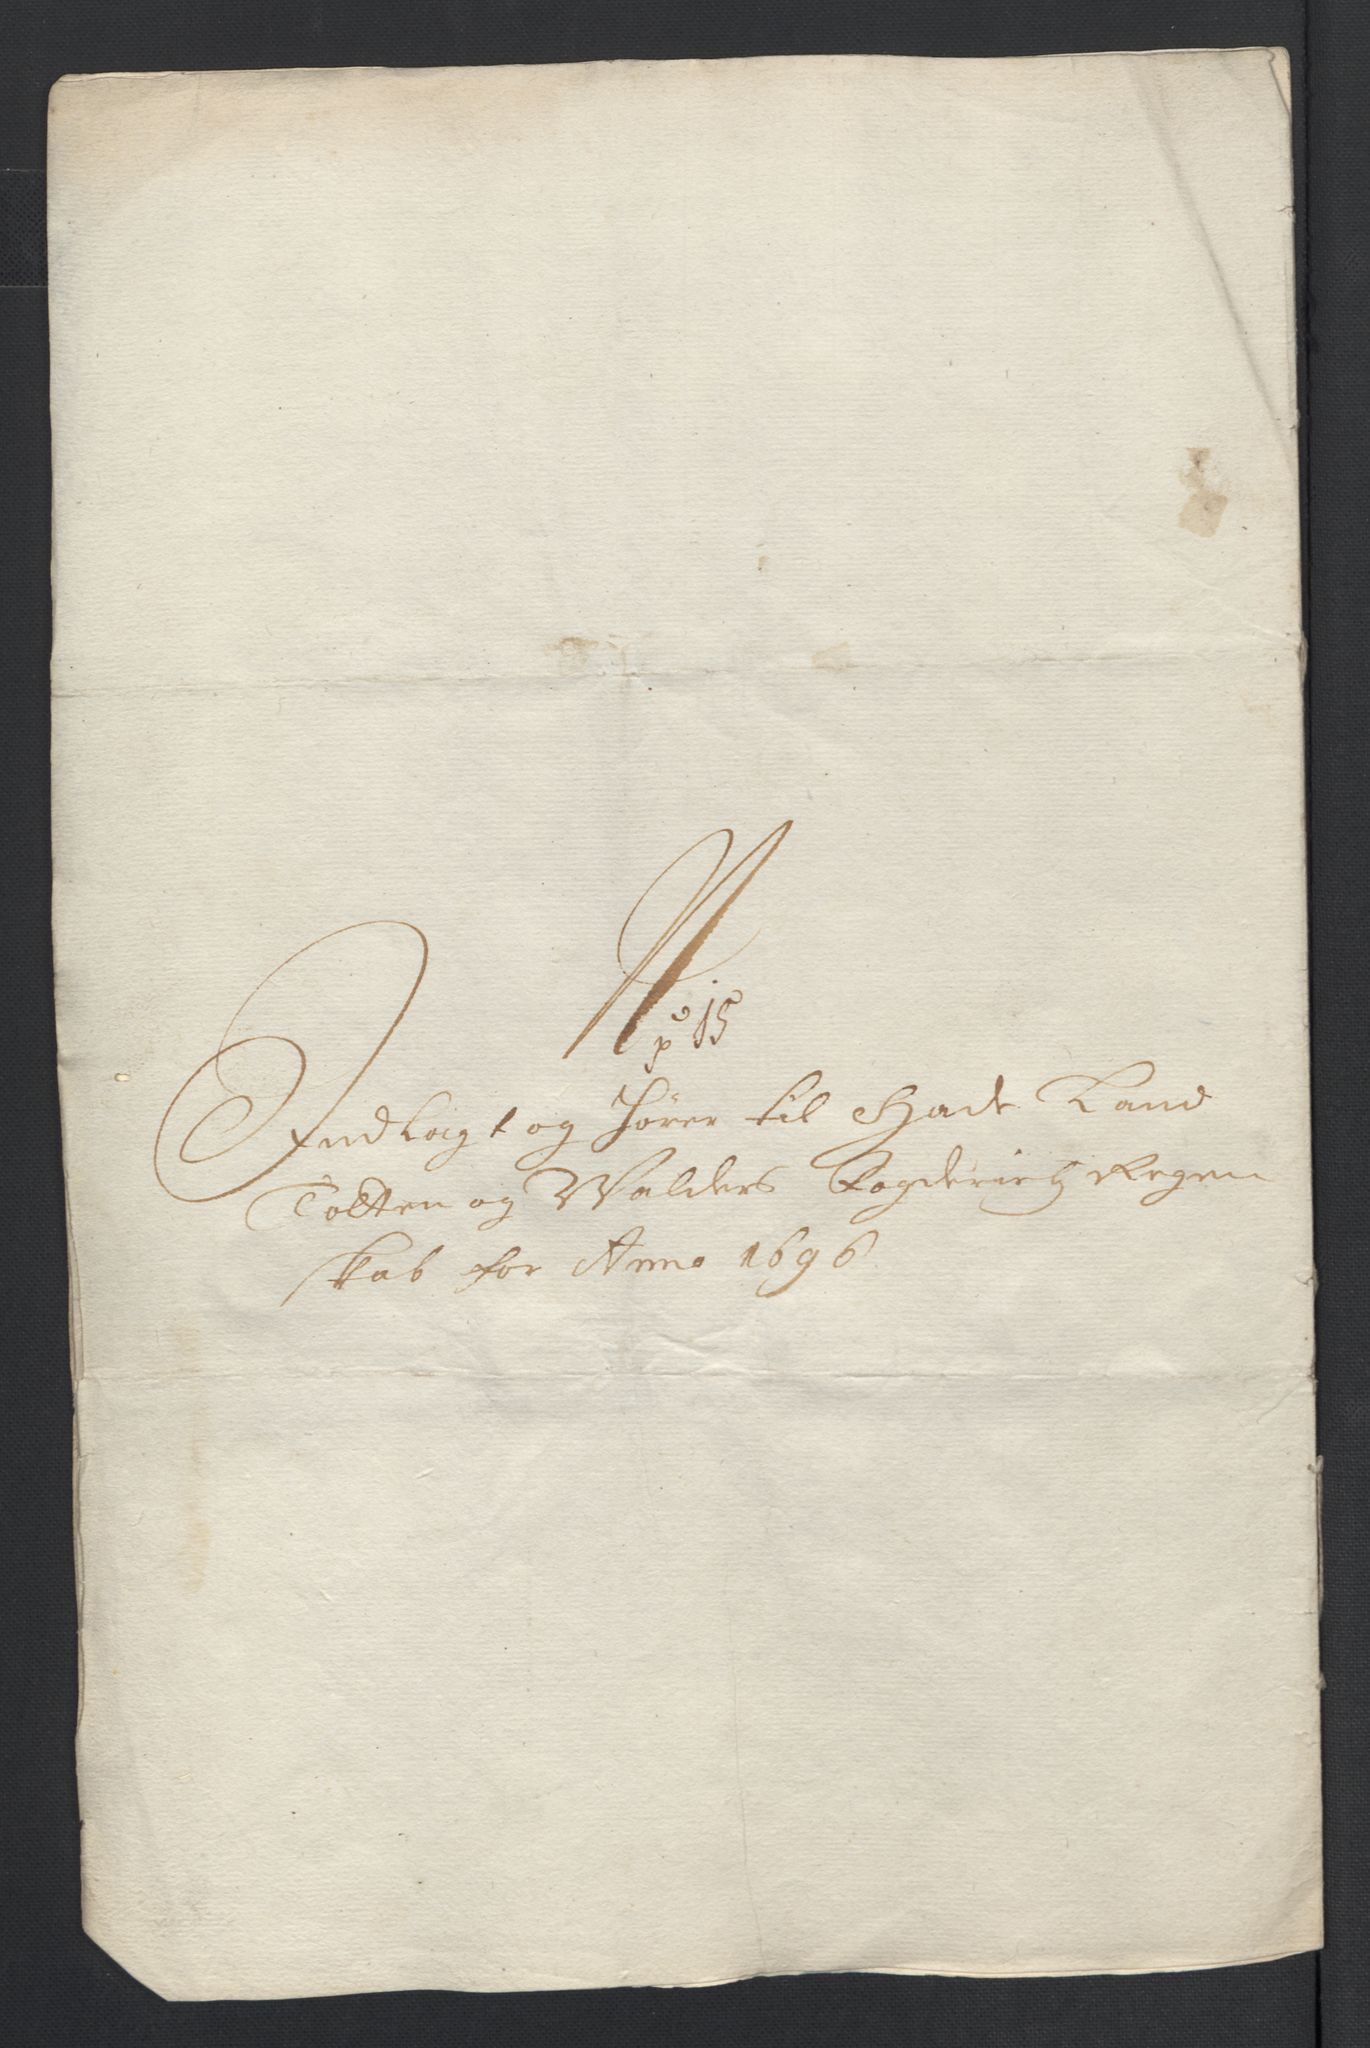 No 15
Indlagt og hörer til Hade Land
Totten og Walders Fogderies Regen
skab for Anno 1696